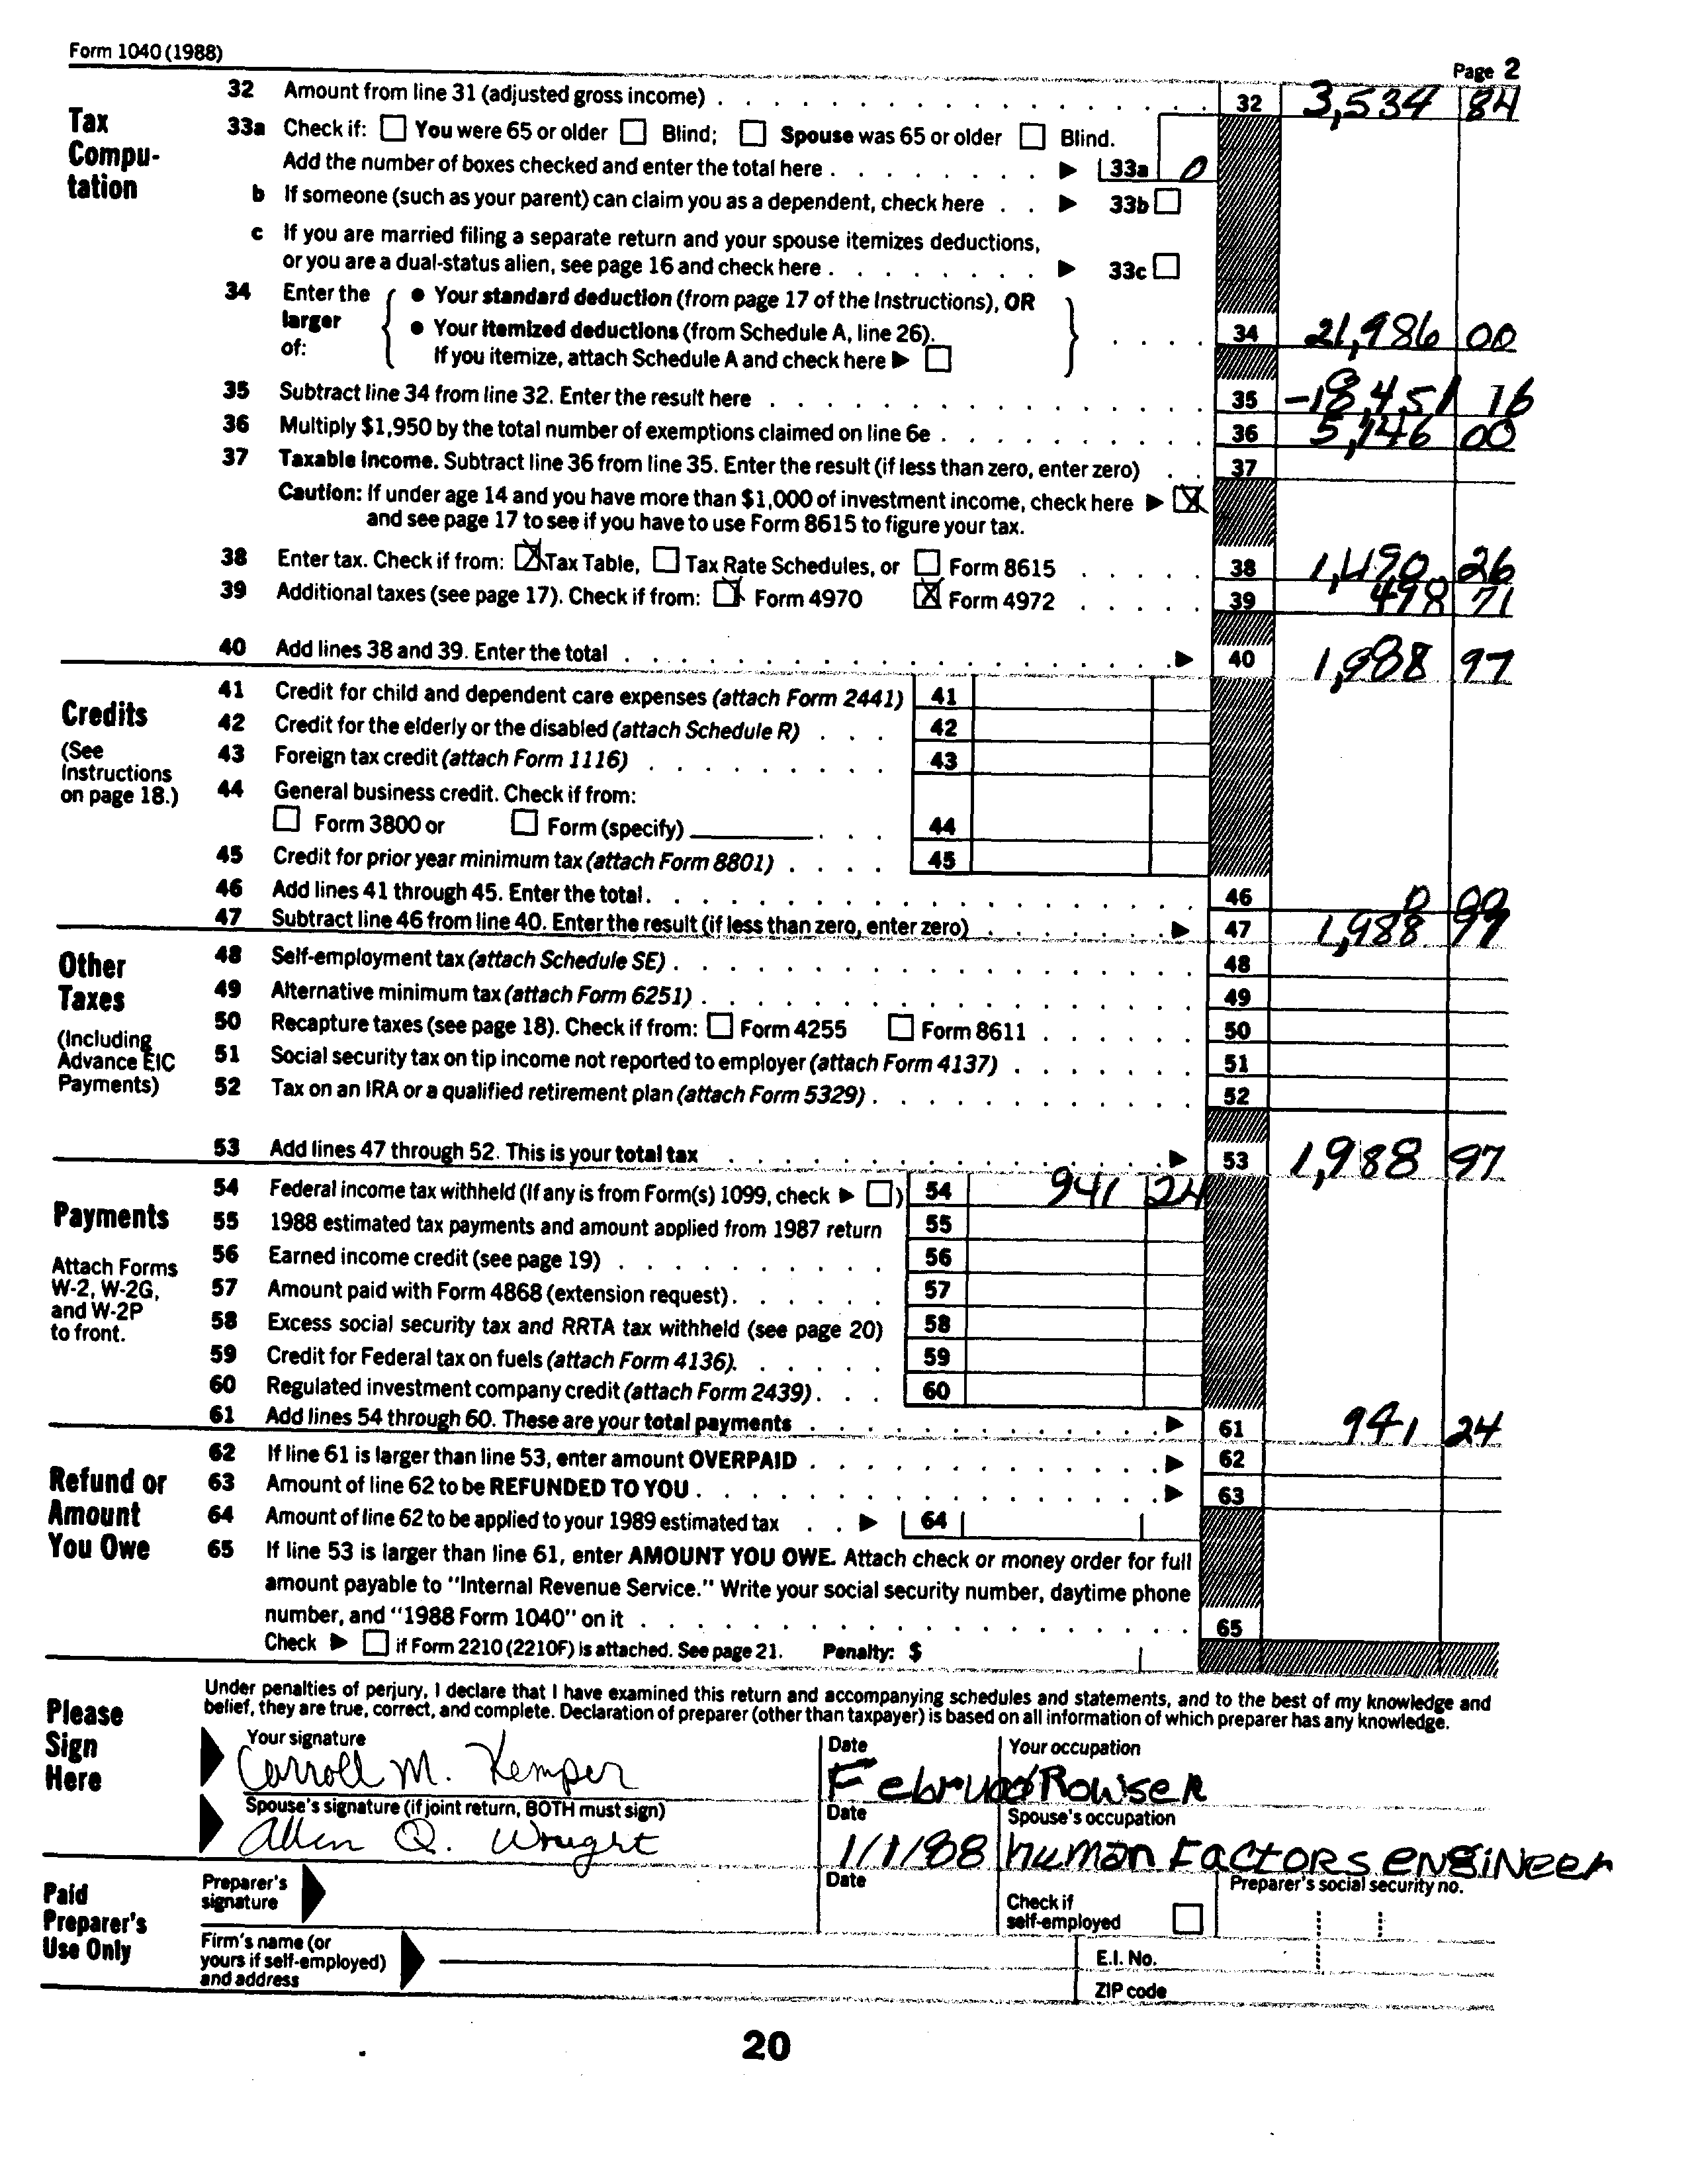 Form 1040 (1988) Page 2
Tax Computation
32 Amount from line 31 (adjusted gross income) . . . 32 3,534 84
33a Check if: ☐ You were 65 or older ☐ Blind; ☐ Spouse was 65 or older ☐ Blind.
Add the number of boxes checked and enter the total here . . . ▶ 33a 0
b If someone (such as your parent) can claim you as a dependent, check here . . ▶ 33b ☐
c If you are married filing a separate return and your spouse itemizes deductions,
or you are a dual-status alien, see page 16 and check here . . . ▶ 33c ☐
34 Enter the larger of: { • Your standard deduction (from page 17 of the Instructions), OR
• Your itemized deductions (from Schedule A, line 26).
If you itemize, attach Schedule A and check here ▶ ☐ } . . . . 34 21,986 00
35 Subtract line 34 from line 32. Enter the result here . . . 35 -18,451 16
36 Multiply $1,950 by the total number of exemptions claimed on line 6e . . . 36 5,746 00
37 Taxable income. Subtract line 36 from line 35. Enter the result (if less than zero, enter zero) . . 37
Caution: If under age 14 and you have more than $1,000 of investment income, check here ▶ ☒
and see page 17 to see if you have to use Form 8615 to figure your tax.
38 Enter tax. Check if from: ☒ Tax Table, ☐ Tax Rate Schedules, or ☐ Form 8615 . . . 38 1,490 26
39 Additional taxes (see page 17). Check if from: ☒ Form 4970 ☒ Form 4972 . . . 39 498 71
40 Add lines 38 and 39. Enter the total . . . ▶ 40 1,988 97
Credits
(See Instructions on page 18.)
41 Credit for child and dependent care expenses (attach Form 2441) 41
42 Credit for the elderly or the disabled (attach Schedule R) . . . 42
43 Foreign tax credit (attach Form 1116) . . . 43
44 General business credit. Check if from:
☐ Form 3800 or ☐ Form (specify) ______ . . . 44
45 Credit for prior year minimum tax (attach Form 8801) . . . . 45
46 Add lines 41 through 45. Enter the total . . . 46 0 00
47 Subtract line 46 from line 40. Enter the result (if less than zero, enter zero) . . . ▶ 47 1,988 97
Other Taxes
(Including Advance EIC Payments)
48 Self-employment tax (attach Schedule SE) . . . 48
49 Alternative minimum tax (attach Form 6251) . . . 49
50 Recapture taxes (see page 18). Check if from: ☐ Form 4255 ☐ Form 8611 . . . 50
51 Social security tax on tip income not reported to employer (attach Form 4137) . . . 51
52 Tax on an IRA or a qualified retirement plan (attach Form 5329) . . . 52
53 Add lines 47 through 52. This is your total tax . . . ▶ 53 1,988 97
Payments
Attach Forms W-2, W-2G, and W-2P to front.
54 Federal income tax withheld (If any is from Form(s) 1099, check ▶ ☐) 54 941 24
55 1988 estimated tax payments and amount applied from 1987 return 55
56 Earned income credit (see page 19) . . . 56
57 Amount paid with Form 4868 (extension request) . . . 57
58 Excess social security tax and RRTA tax withheld (see page 20) 58
59 Credit for Federal tax on fuels (attach Form 4136). . . . 59
60 Regulated investment company credit (attach Form 2439) . . . 60
61 Add lines 54 through 60. These are your total payments . . . ▶ 61 941 24
Refund or Amount You Owe
62 If line 61 is larger than line 53, enter amount OVERPAID . . . ▶ 62
63 Amount of line 62 to be REFUNDED TO YOU . . . ▶ 63
64 Amount of line 62 to be applied to your 1989 estimated tax . . ▶ 64
65 If line 53 is larger than line 61, enter AMOUNT YOU OWE. Attach check or money order for full
amount payable to "Internal Revenue Service." Write your social security number, daytime phone
number, and "1988 Form 1040" on it . . . 65
Check ▶ ☐ if Form 2210 (2210F) is attached. See page 21. Penalty: $
Please Sign Here
Under penalties of perjury, I declare that I have examined this return and accompanying schedules and statements, and to the best of my knowledge and
belief, they are true, correct, and complete. Declaration of preparer (other than taxpayer) is based on all information of which preparer has any knowledge.
Your signature Date Your occupation
Carroll M. Kemper Rowser
Spouse's signature (if joint return, BOTH must sign) Date Spouse's occupation
Allen Q. Wright 1/1/88 human Factors engineer
Paid Preparer's Use Only
Preparer's signature Date Check if self-employed ☐ Preparer's social security no.
Firm's name (or yours if self-employed) and address E.I. No.
ZIP code
20